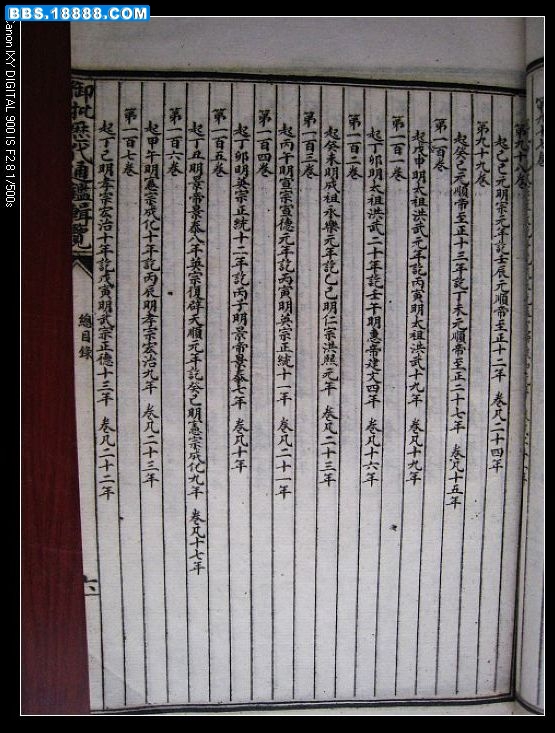 BBS.18888.COM
Canon IXY DIGITAL 900 IS F2.8 1/500s
第九十八卷
起己巳元明宗元年訖壬辰元順帝至正十二年 卷凡二十四年
第九十九卷
起癸巳元順帝至正十三年訖丁未元順帝至正二十七年 卷凡十五年
第一百卷
起戊申明太祖洪武元年訖丙寅明太祖洪武十九年 卷凡十九年
第一百一卷
起丁卯明太祖洪武二十年訖壬午明惠帝建文四年 卷凡十六年
第一百二卷
起癸未明成祖永樂元年訖乙巳明仁宗洪熙元年 卷凡二十三年
第一百三卷
起丙午明宣宗宣德元年訖丙寅明英宗正統十一年 卷凡二十一年
第一百四卷
起丁卯明英宗正統十二年訖丙子明景帝景泰七年 卷凡十年
第一百五卷
起丁丑明景帝景泰八年英宗復辟天順元年訖癸巳明憲宗成化九年 卷凡十七年
第一百六卷
起甲午明憲宗成化十年訖丙辰明孝宗宏治九年 卷凡二十三年
第一百七卷
起丁巳明孝宗宏治十年訖戊寅明武宗正德十三年 卷凡二十二年
御批歷代通鑑輯覽
總目錄
六